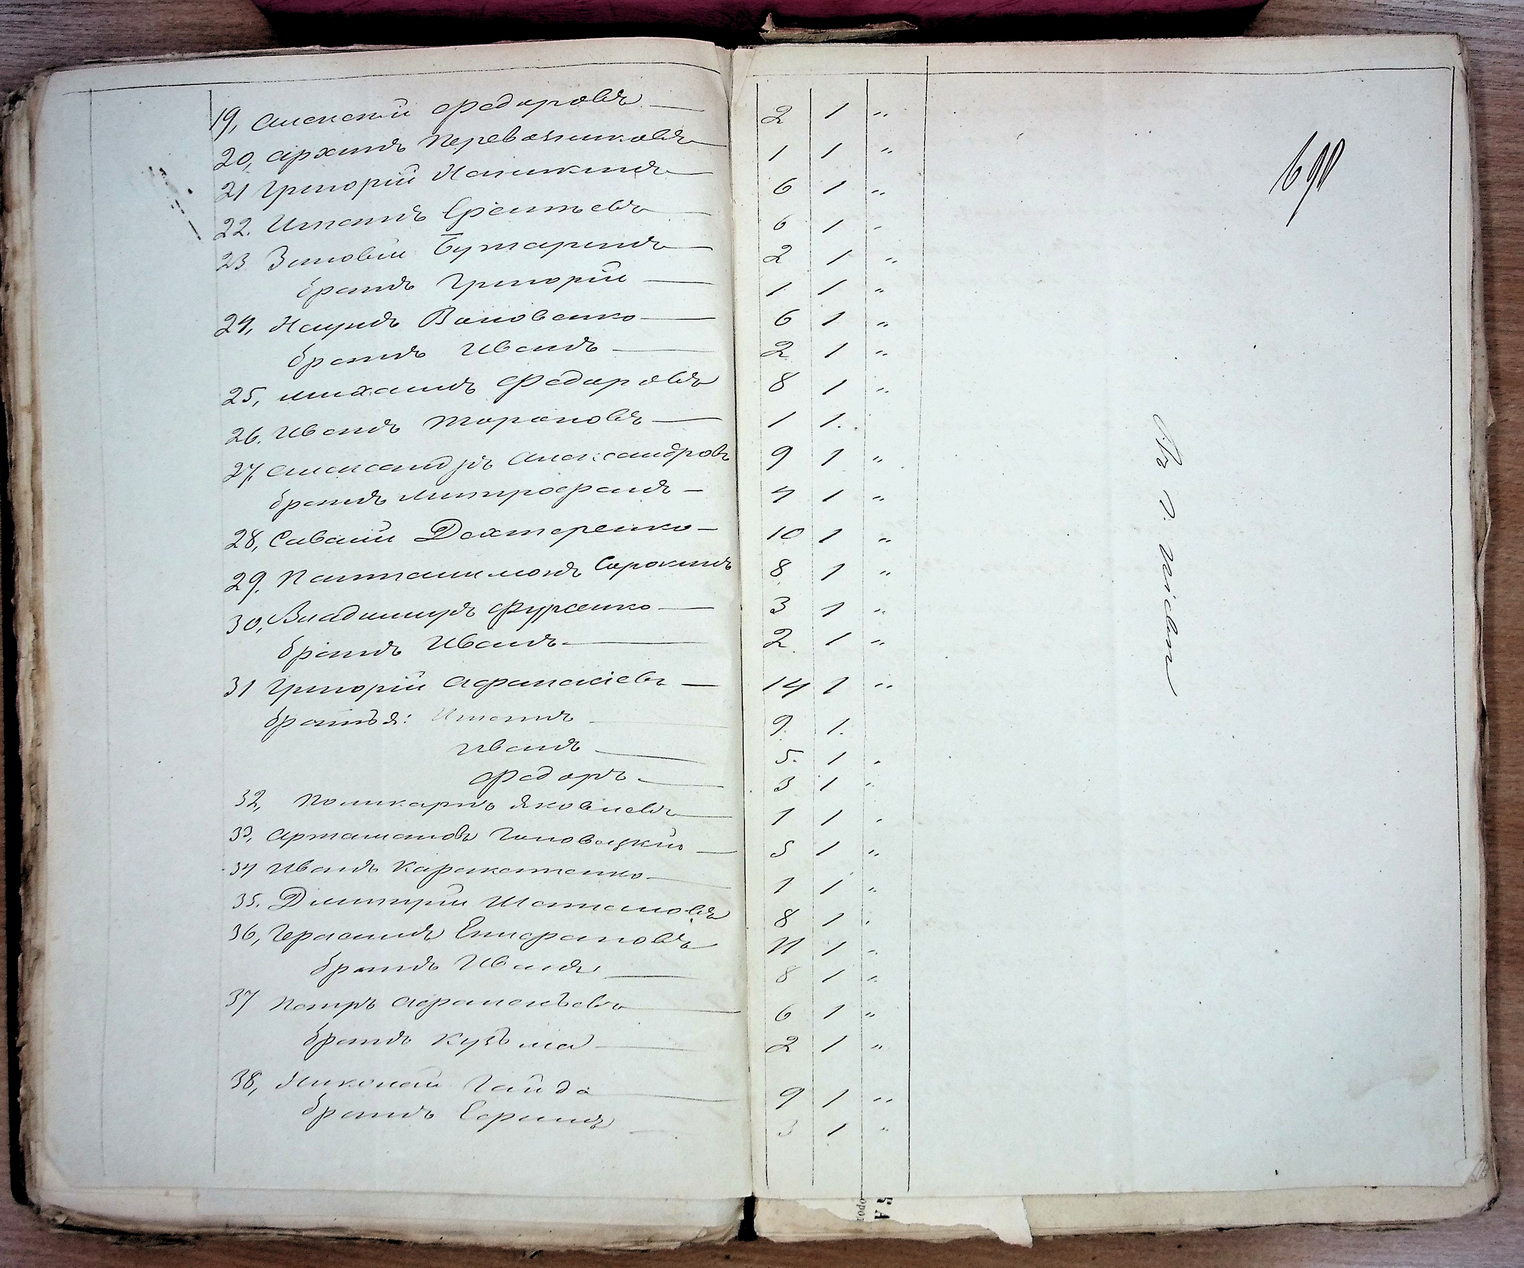 19, Алексей Федоровъ — 2 1 „
20, Архипъ Перевозниковъ — 1 1 „
21 Григорій Наникинъ — 6 1 „
22. Игнатъ — 6 1 „
23 Зиновій Бутаринъ — 2 1 „
братъ Григорій — 1 1 „
24, Наумъ Воловенко — 6 1 „
братъ Иванъ — 2 1 „
25, Михаилъ Федоровъ 8 1 „
26. Иванъ Тарановъ — 1 1.
27, Александръ Александровъ 9 1 „
братъ Митрофанъ — 4 1 „
28, Савелій Дехтеренко — 10 1 „
29. Пантелимонъ Сорокинъ 8 1 „
30, Владимиръ Фурсенко — 3 1 „
братъ Иванъ — 2 1 „
31 Григорій Афанасіевъ — 14 1 „
братья: Игнатъ 9. 1.
Иванъ — 5. 1 „
Федоръ — 3 1 „
32, Поликарпъ Яковлевъ 1 1 „
33, Артамановъ Головацкій — 5 1 „
34 Иванъ Каракотенко — 1 1 „
35. Димитрій Шаталовъ 8 1 „
36, Герасимъ Епифановъ 11 1 „
братъ Иванъ — 8 1 „
37 Петръ Афанасьевъ 6 1 „
братъ Кузьма — 2 1 „
38, Николай Гайда 9 1 „
братъ Ефимъ 3 1 „
690